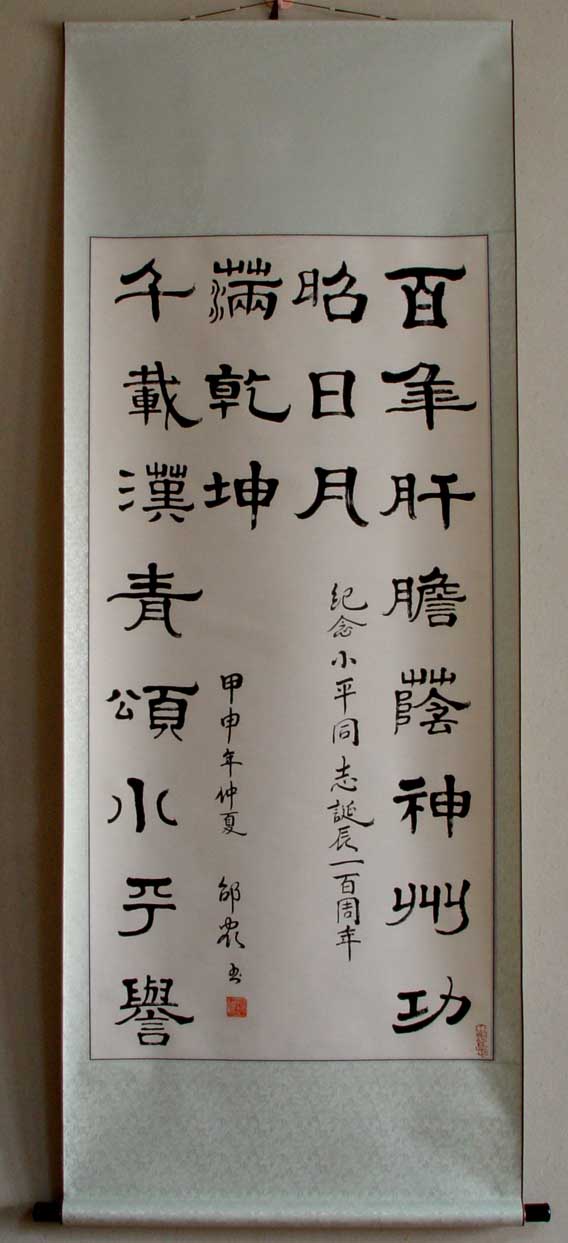 百年肝膽蔭神州功
昭日月
紀念小平同志誕辰一百周年
千載漢青頌小平譽
滿乾坤
甲申年仲夏 邵 书